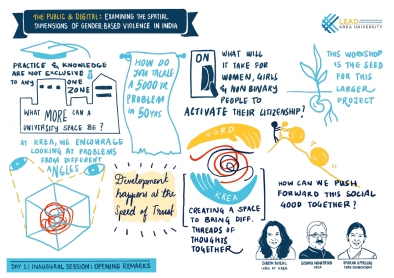 THE PUBLIC & DIGITAL: EXAMINING THE SPATIAL
DIMENSIONS OF GENDER BASED VIOLENCE IN INDIA
LEAD
KREA UNIVERSITY
PRACTICE & KNOWLEDGE
ARE NOT EXCLUSIVE
TO ANY ONE
ZONE
WHAT MORE CAN A
UNIVERSITY SPACE BE?
HOW DO
YOU TACKLE
A 5000 YR
PROBLEM
IN 50 YRS
ON
WHAT WILL
IT TAKE FOR
WOMEN, GIRLS
& NON BINARY
PEOPLE TO
ACTIVATE THEIR CITIZENSHIP?
THIS WORKSHOP
IS THE SEED
FOR THIS
LARGER
PROJECT
AT KREA, WE ENCOURAGE
LOOKING AT PROBLEMS
FROM DIFFERENT
ANGLES
Development
happens at the
Speed of Trust
FORD
KREA
CREATING A SPACE
TO BRING DIFF.
THREADS OF
THOUGHTS
TOGETHER
HOW CAN WE PUSH
FORWARD THIS SOCIAL
GOOD TOGETHER?
LEAD AT KREA
KREA
FORD FOUNDATION
DAY 1 | INAUGURAL SESSION: OPENING REMARKS